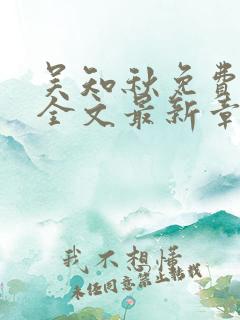 吴知秋免费
全文最新章
我不想懂
未经同意禁止转载